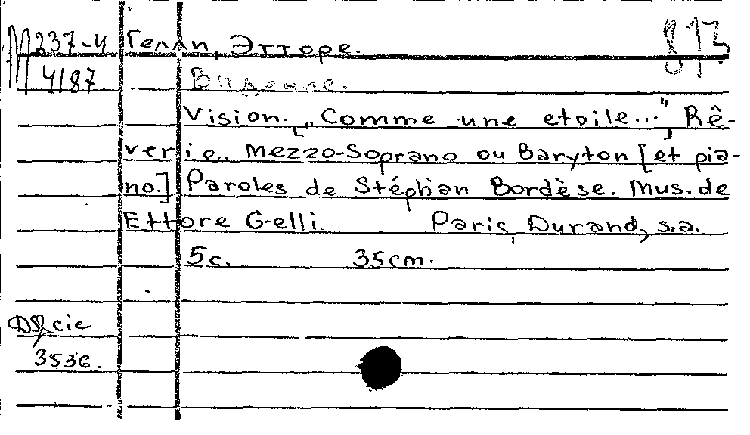 М 237-4 Гелли, Этторе. 813
М 4187 Видение.
Vision. „Comme une etoile..." Rê-
verie. Mezzo-Soprano ou Baryton [et pia-
no] Paroles de Stéphan Bordèse. Mus. de
Ettore Gelli. Paris, Durand, s.a.
5c. 35cm.
D&cie
3536.